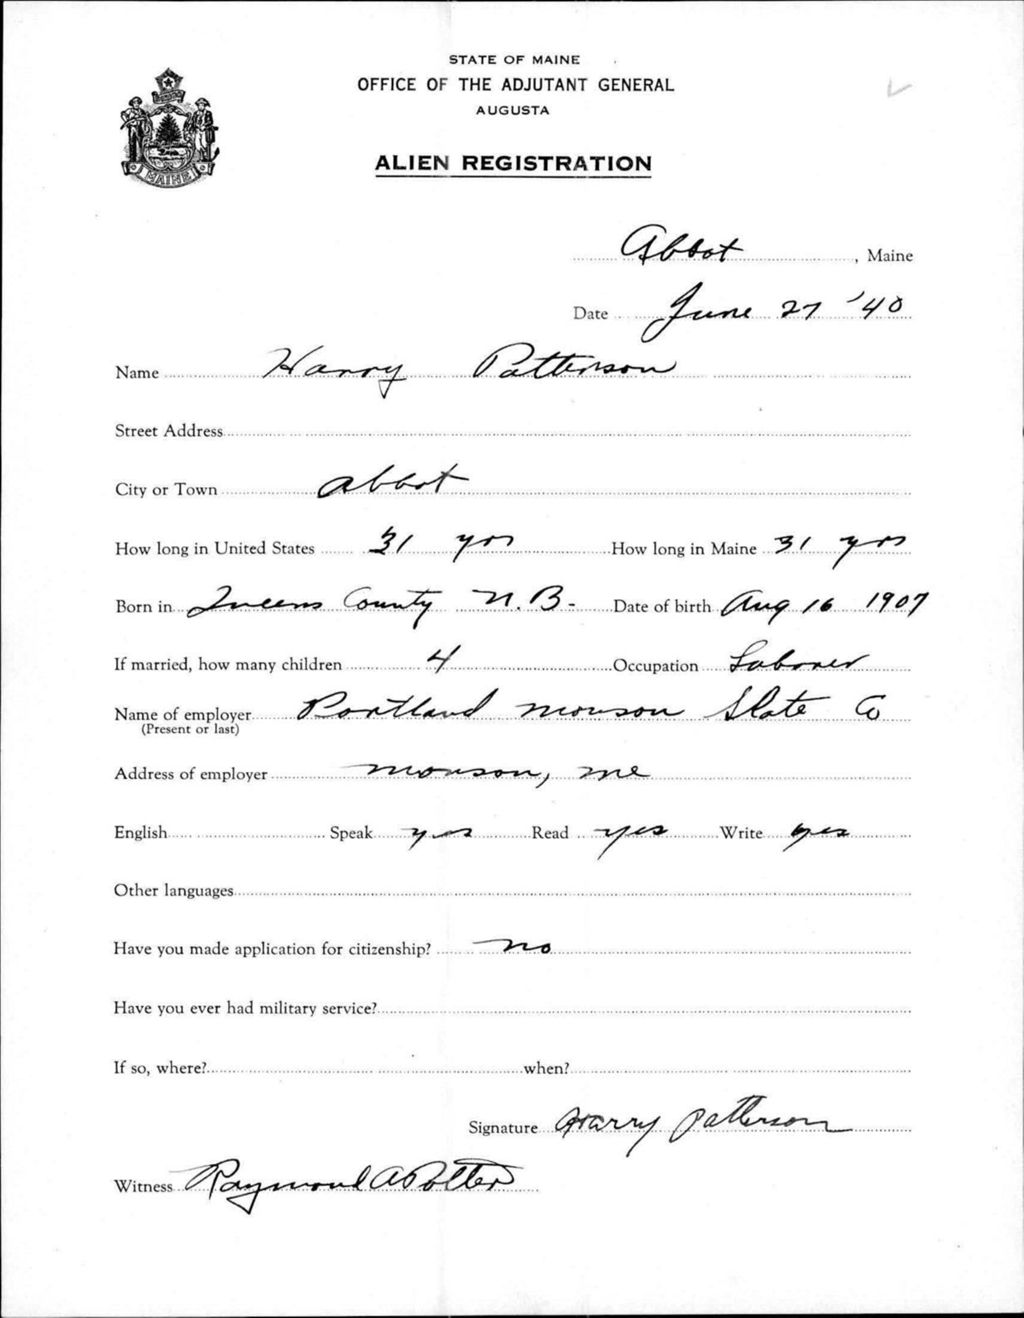 STATE OF MAINE
OFFICE OF THE ADJUTANT GENERAL
AUGUSTA
ALIEN REGISTRATION
MAINE
Abbot, Maine
Date June 27 '40
Name Harry Patterson
Street Address
City or Town Abbot
How long in United States 31 yrs How long in Maine 31 yrs
Born in Queens County N.B- Date of birth Aug 16 1907
If married, how many children 4 Occupation Laborer
Name of employer Portland Monson Slate Co
(Present or last)
Address of employer Monson, Me
English Speak yes Read yes Write yes
Other languages
Have you made application for citizenship? no
Have you ever had military service?
If so, where? when?
Signature Harry Patterson
Witness Raymond A Potter